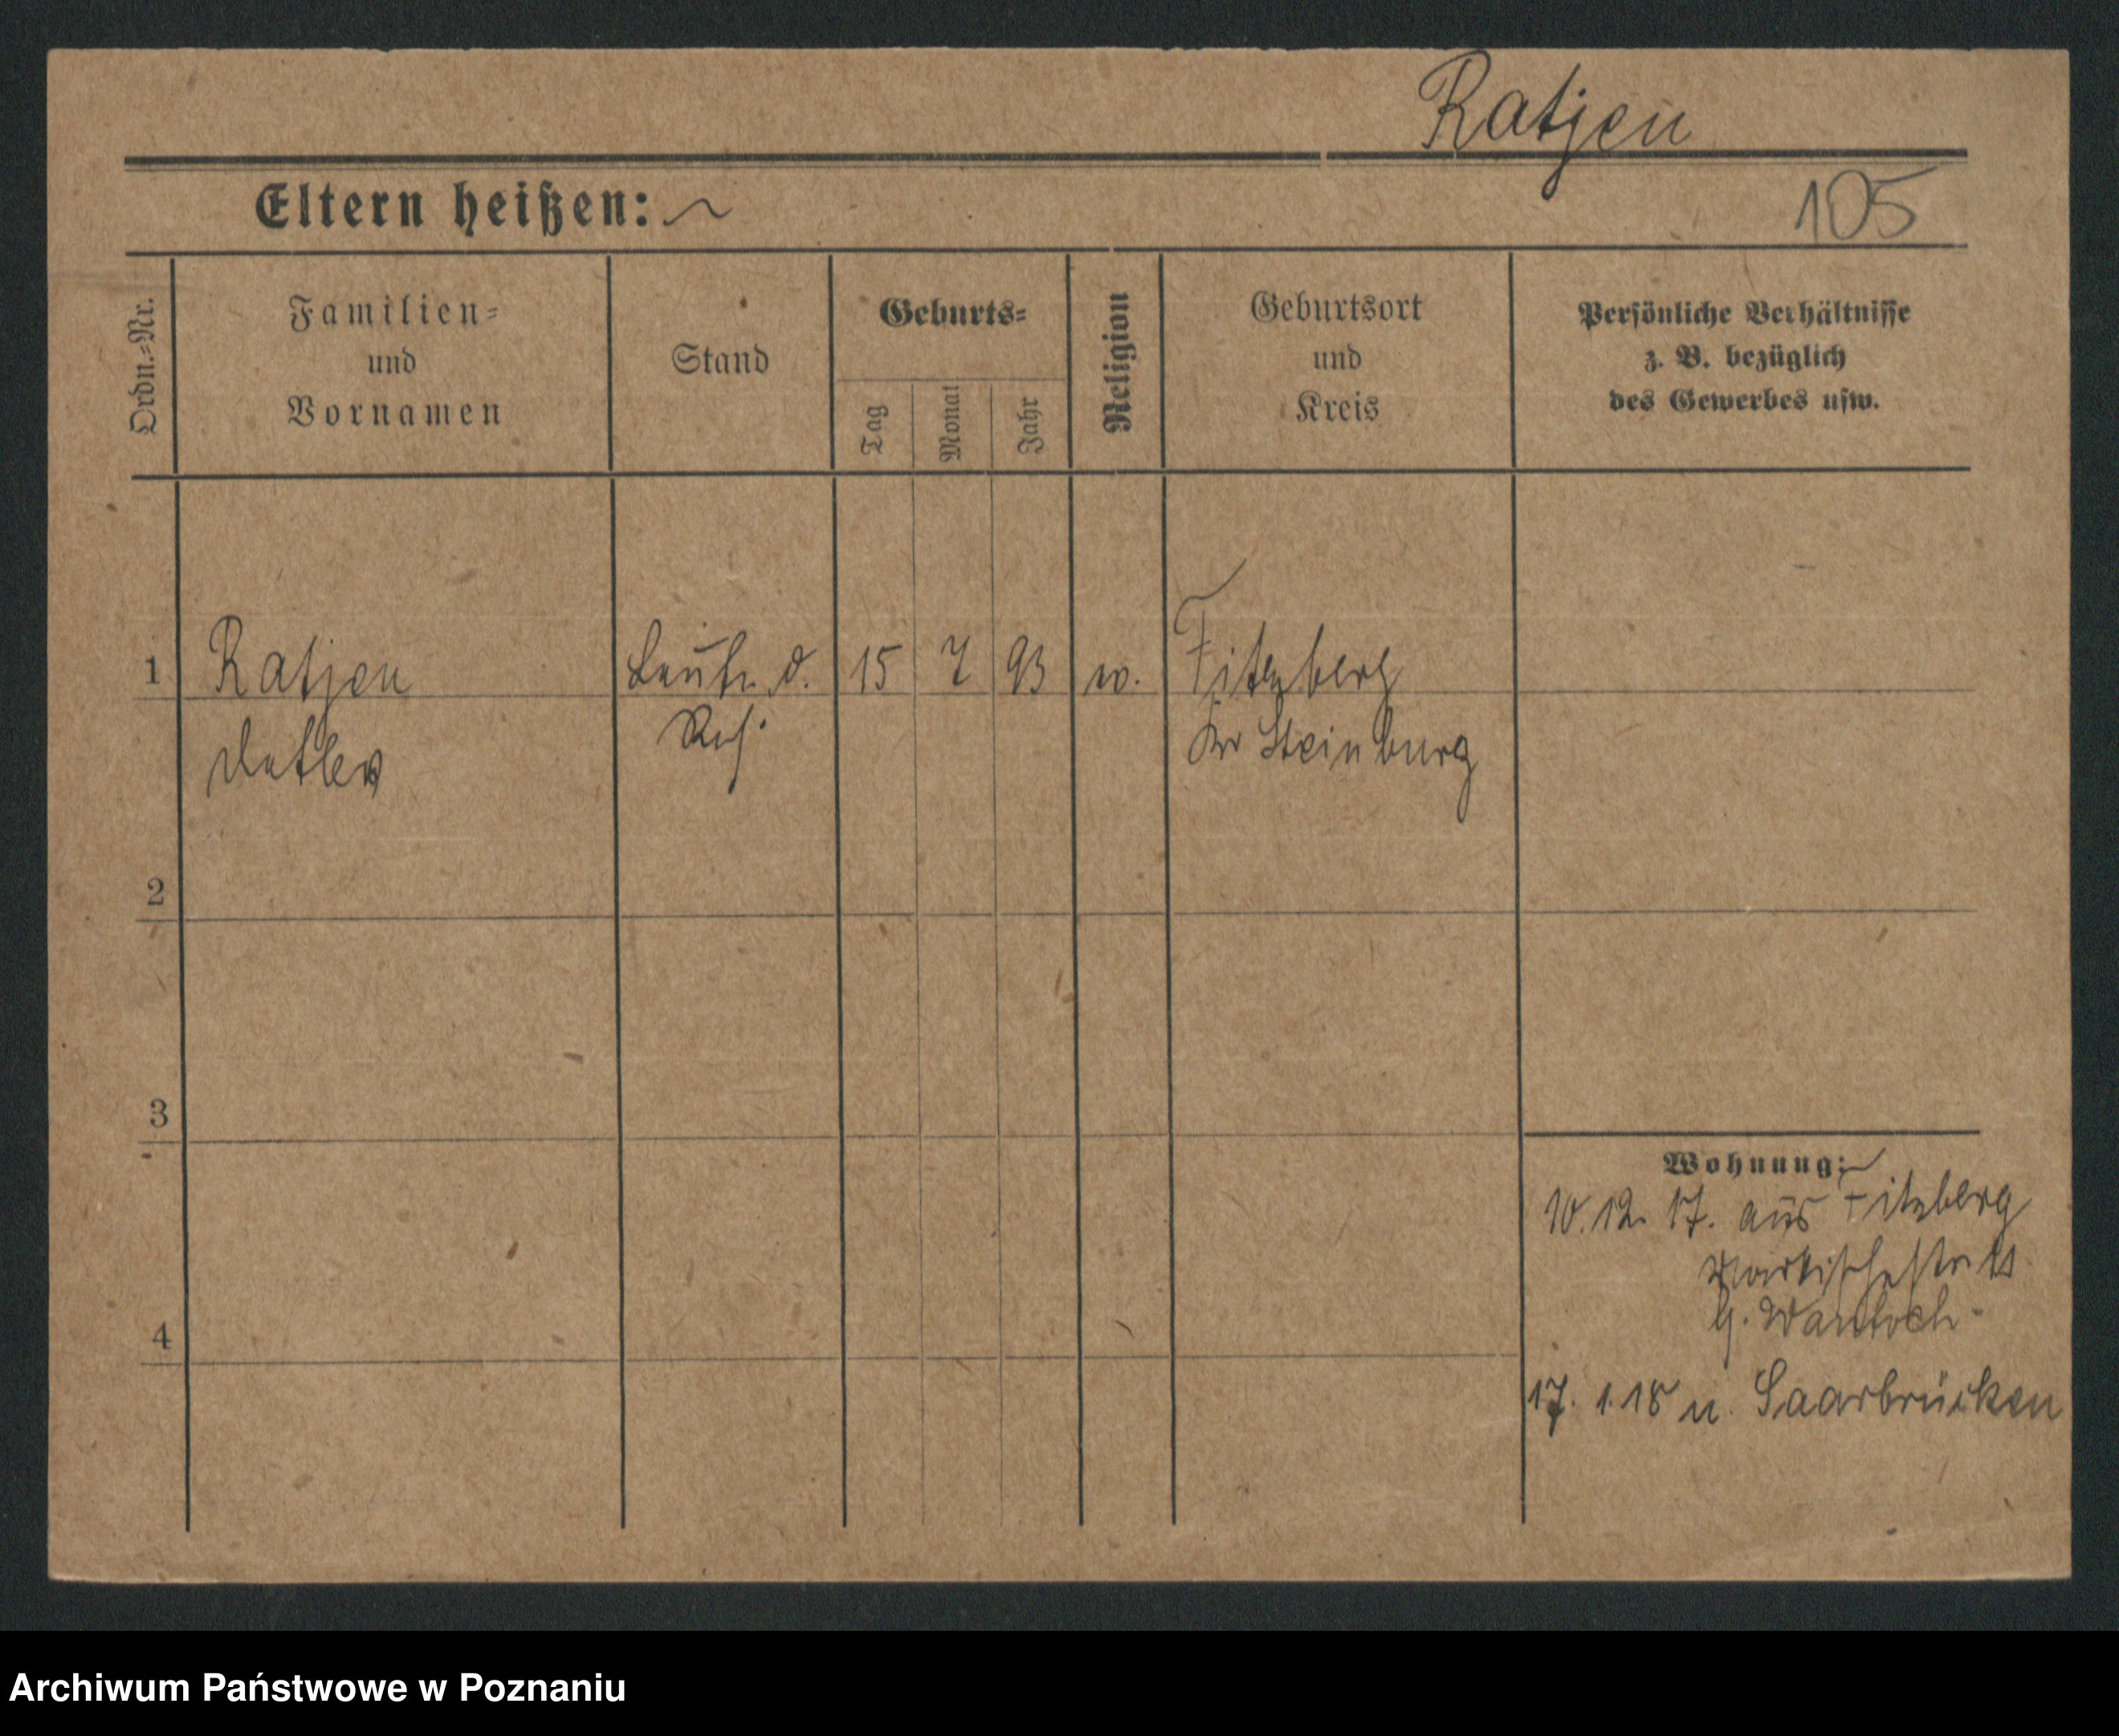 Ratjen
Eltern heißen: ~
105
Ordn.=Nr.
Familien=
und
Vornamen
Stand
Geburts=
Tag
Monat
Jahr
Religion
Geburtsort
und
Kreis
Persönliche Verhältnisse
z. B. bezüglich
des Gewerbes usw.
1 Ratjen Leutn. d. 15 7 93 Fitzberg
Detlev Res. Kr Steinburg
2
3
4
Wohnung:
10.12.17. aus Fitzberg
Märkischestr
G.
17. 1.18 n. Saarbrücken
Archiwum Państwowe w Poznaniu